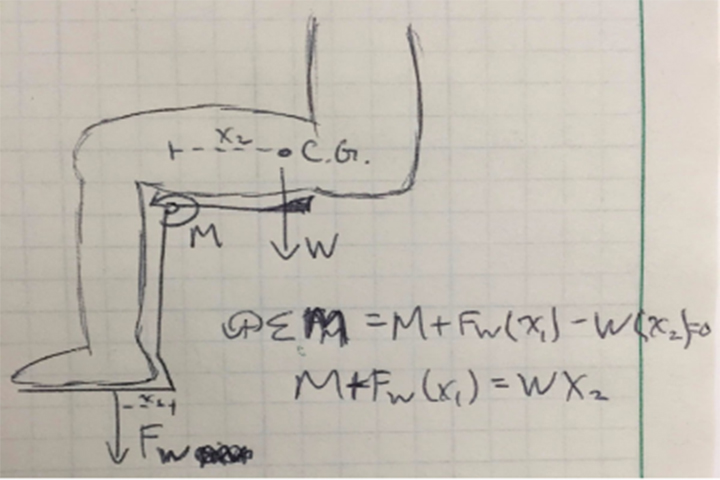 x₂ C.G.
M
W
↺ΣM = M + F_W(x₁) - W(x₂)=0
M + F_W(x₁) = W x₂
x₂
F_W